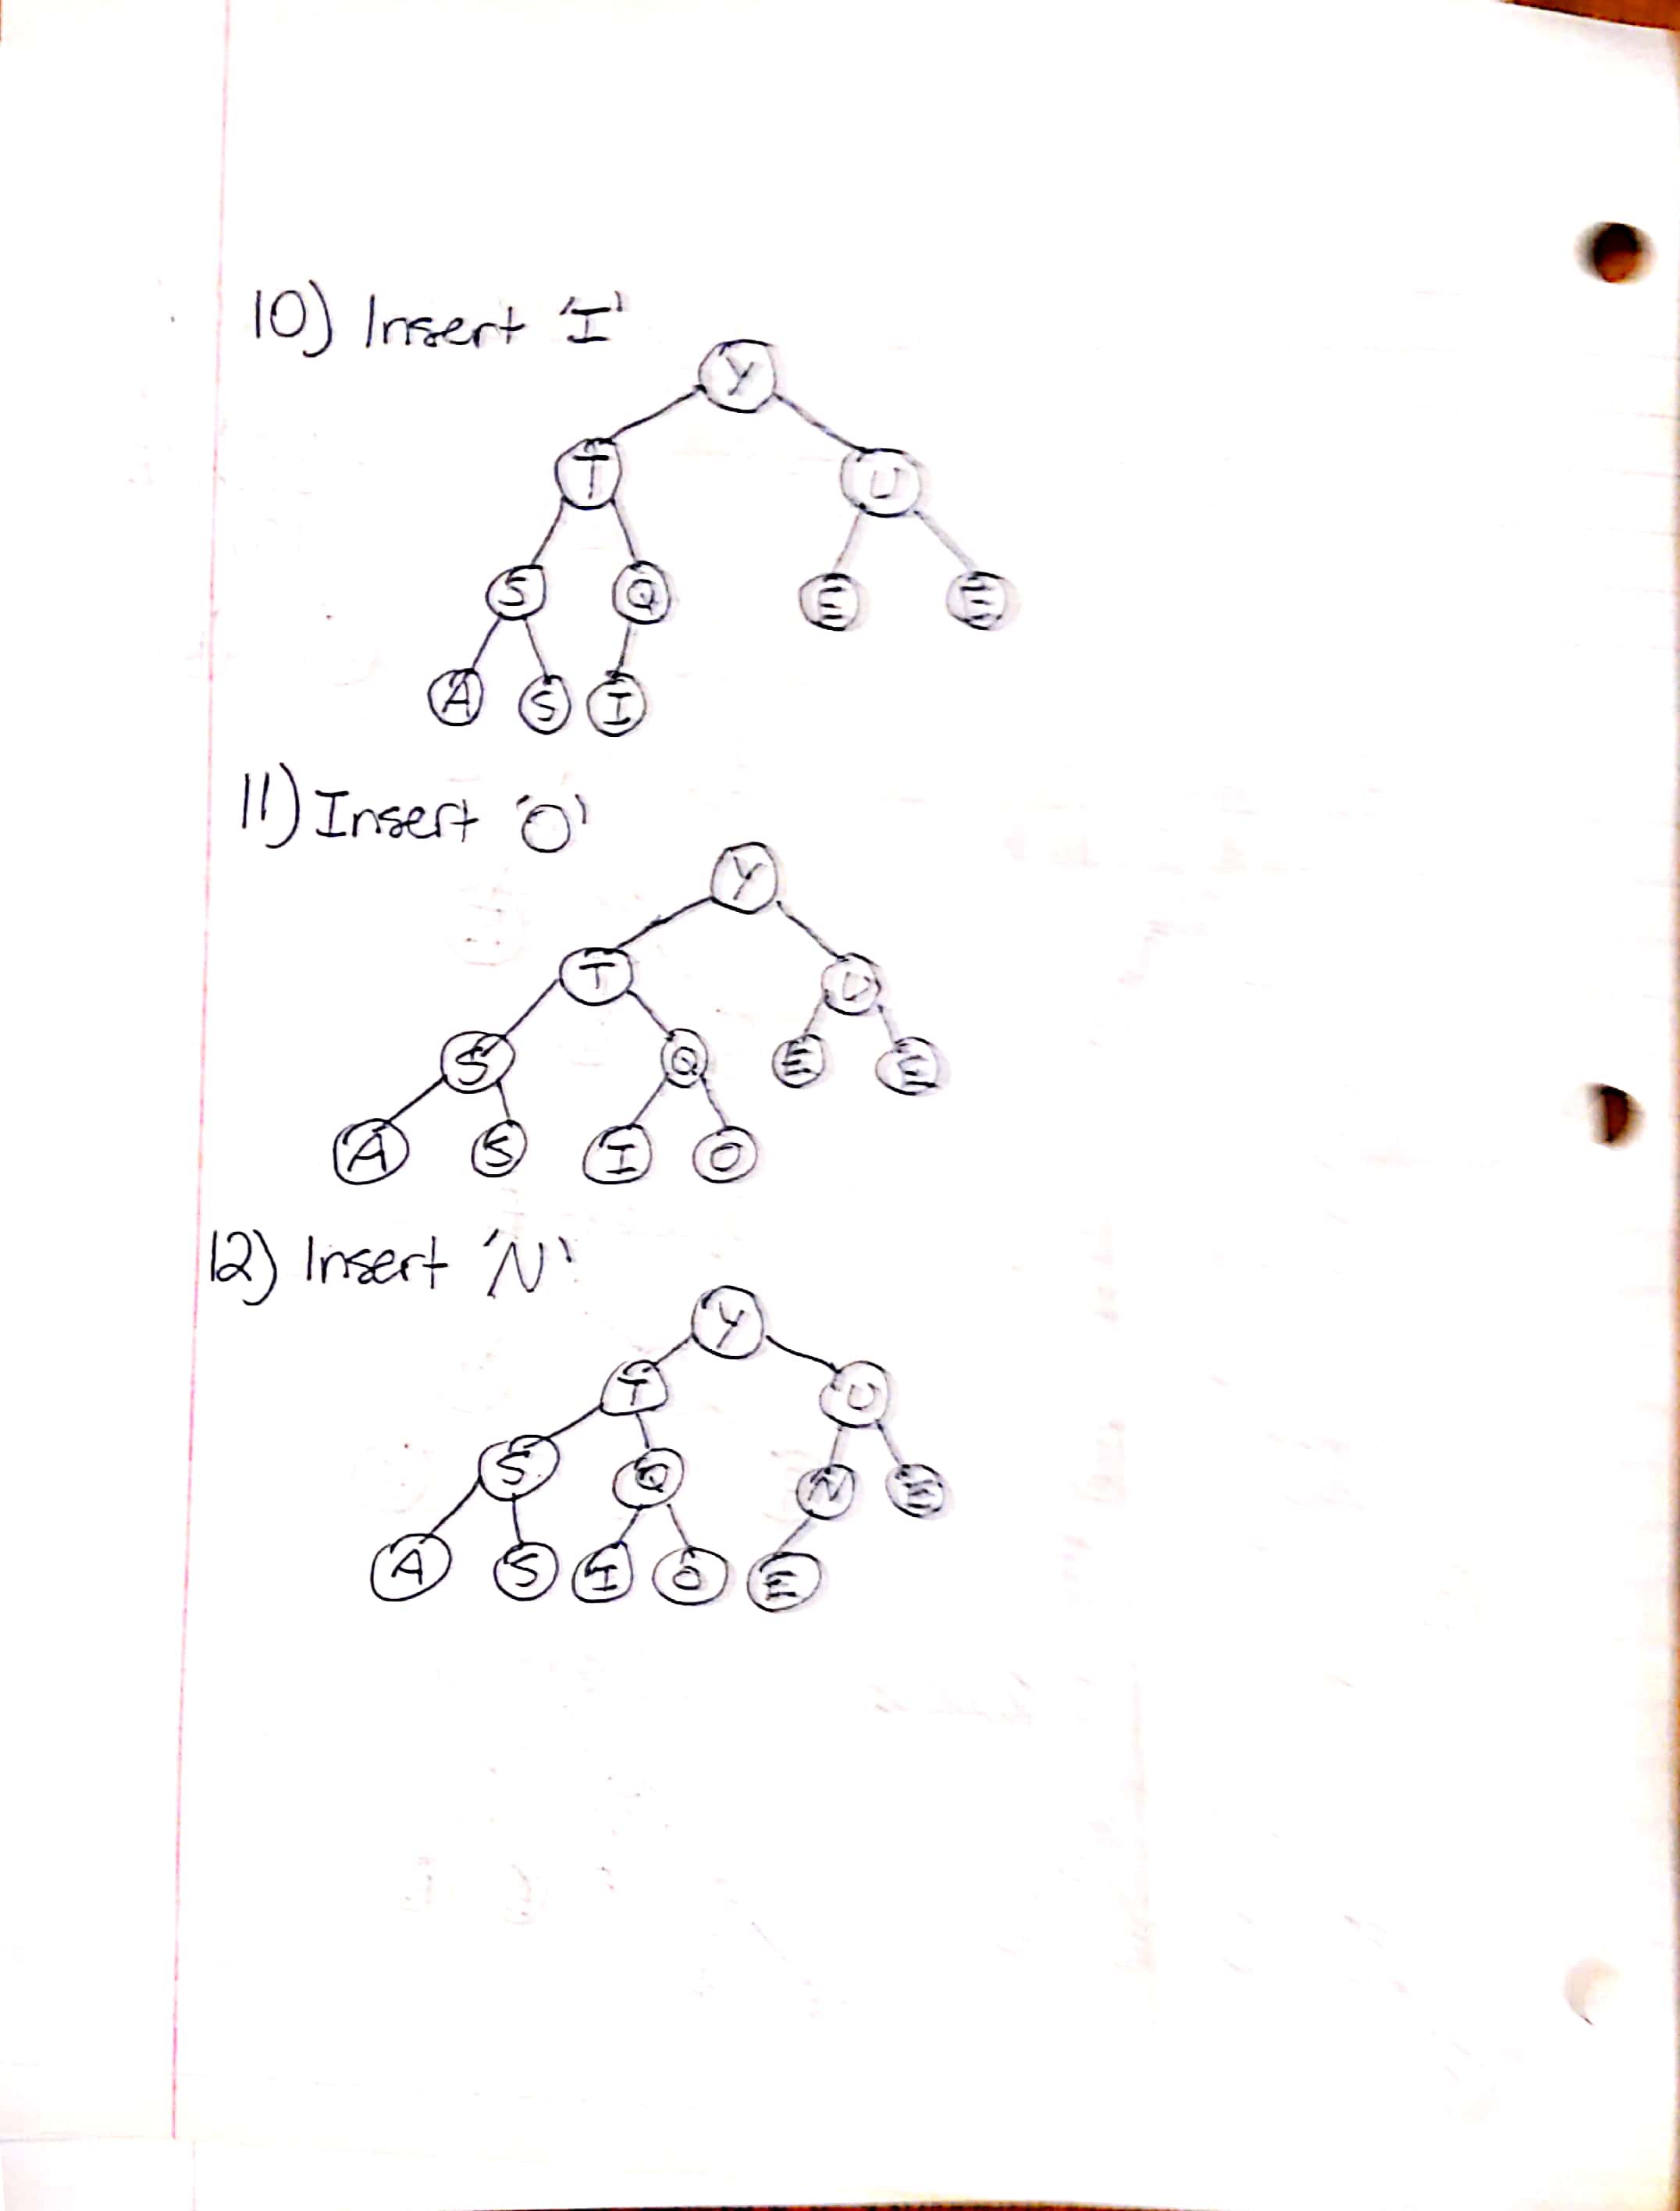 10) Insert 'I'
Y
T U
S Q E E
A S I
11) Insert 'O'
Y
T U
S Q E E
A S I O
12) Insert 'N'
Y
T U
S Q N E
A S I O E